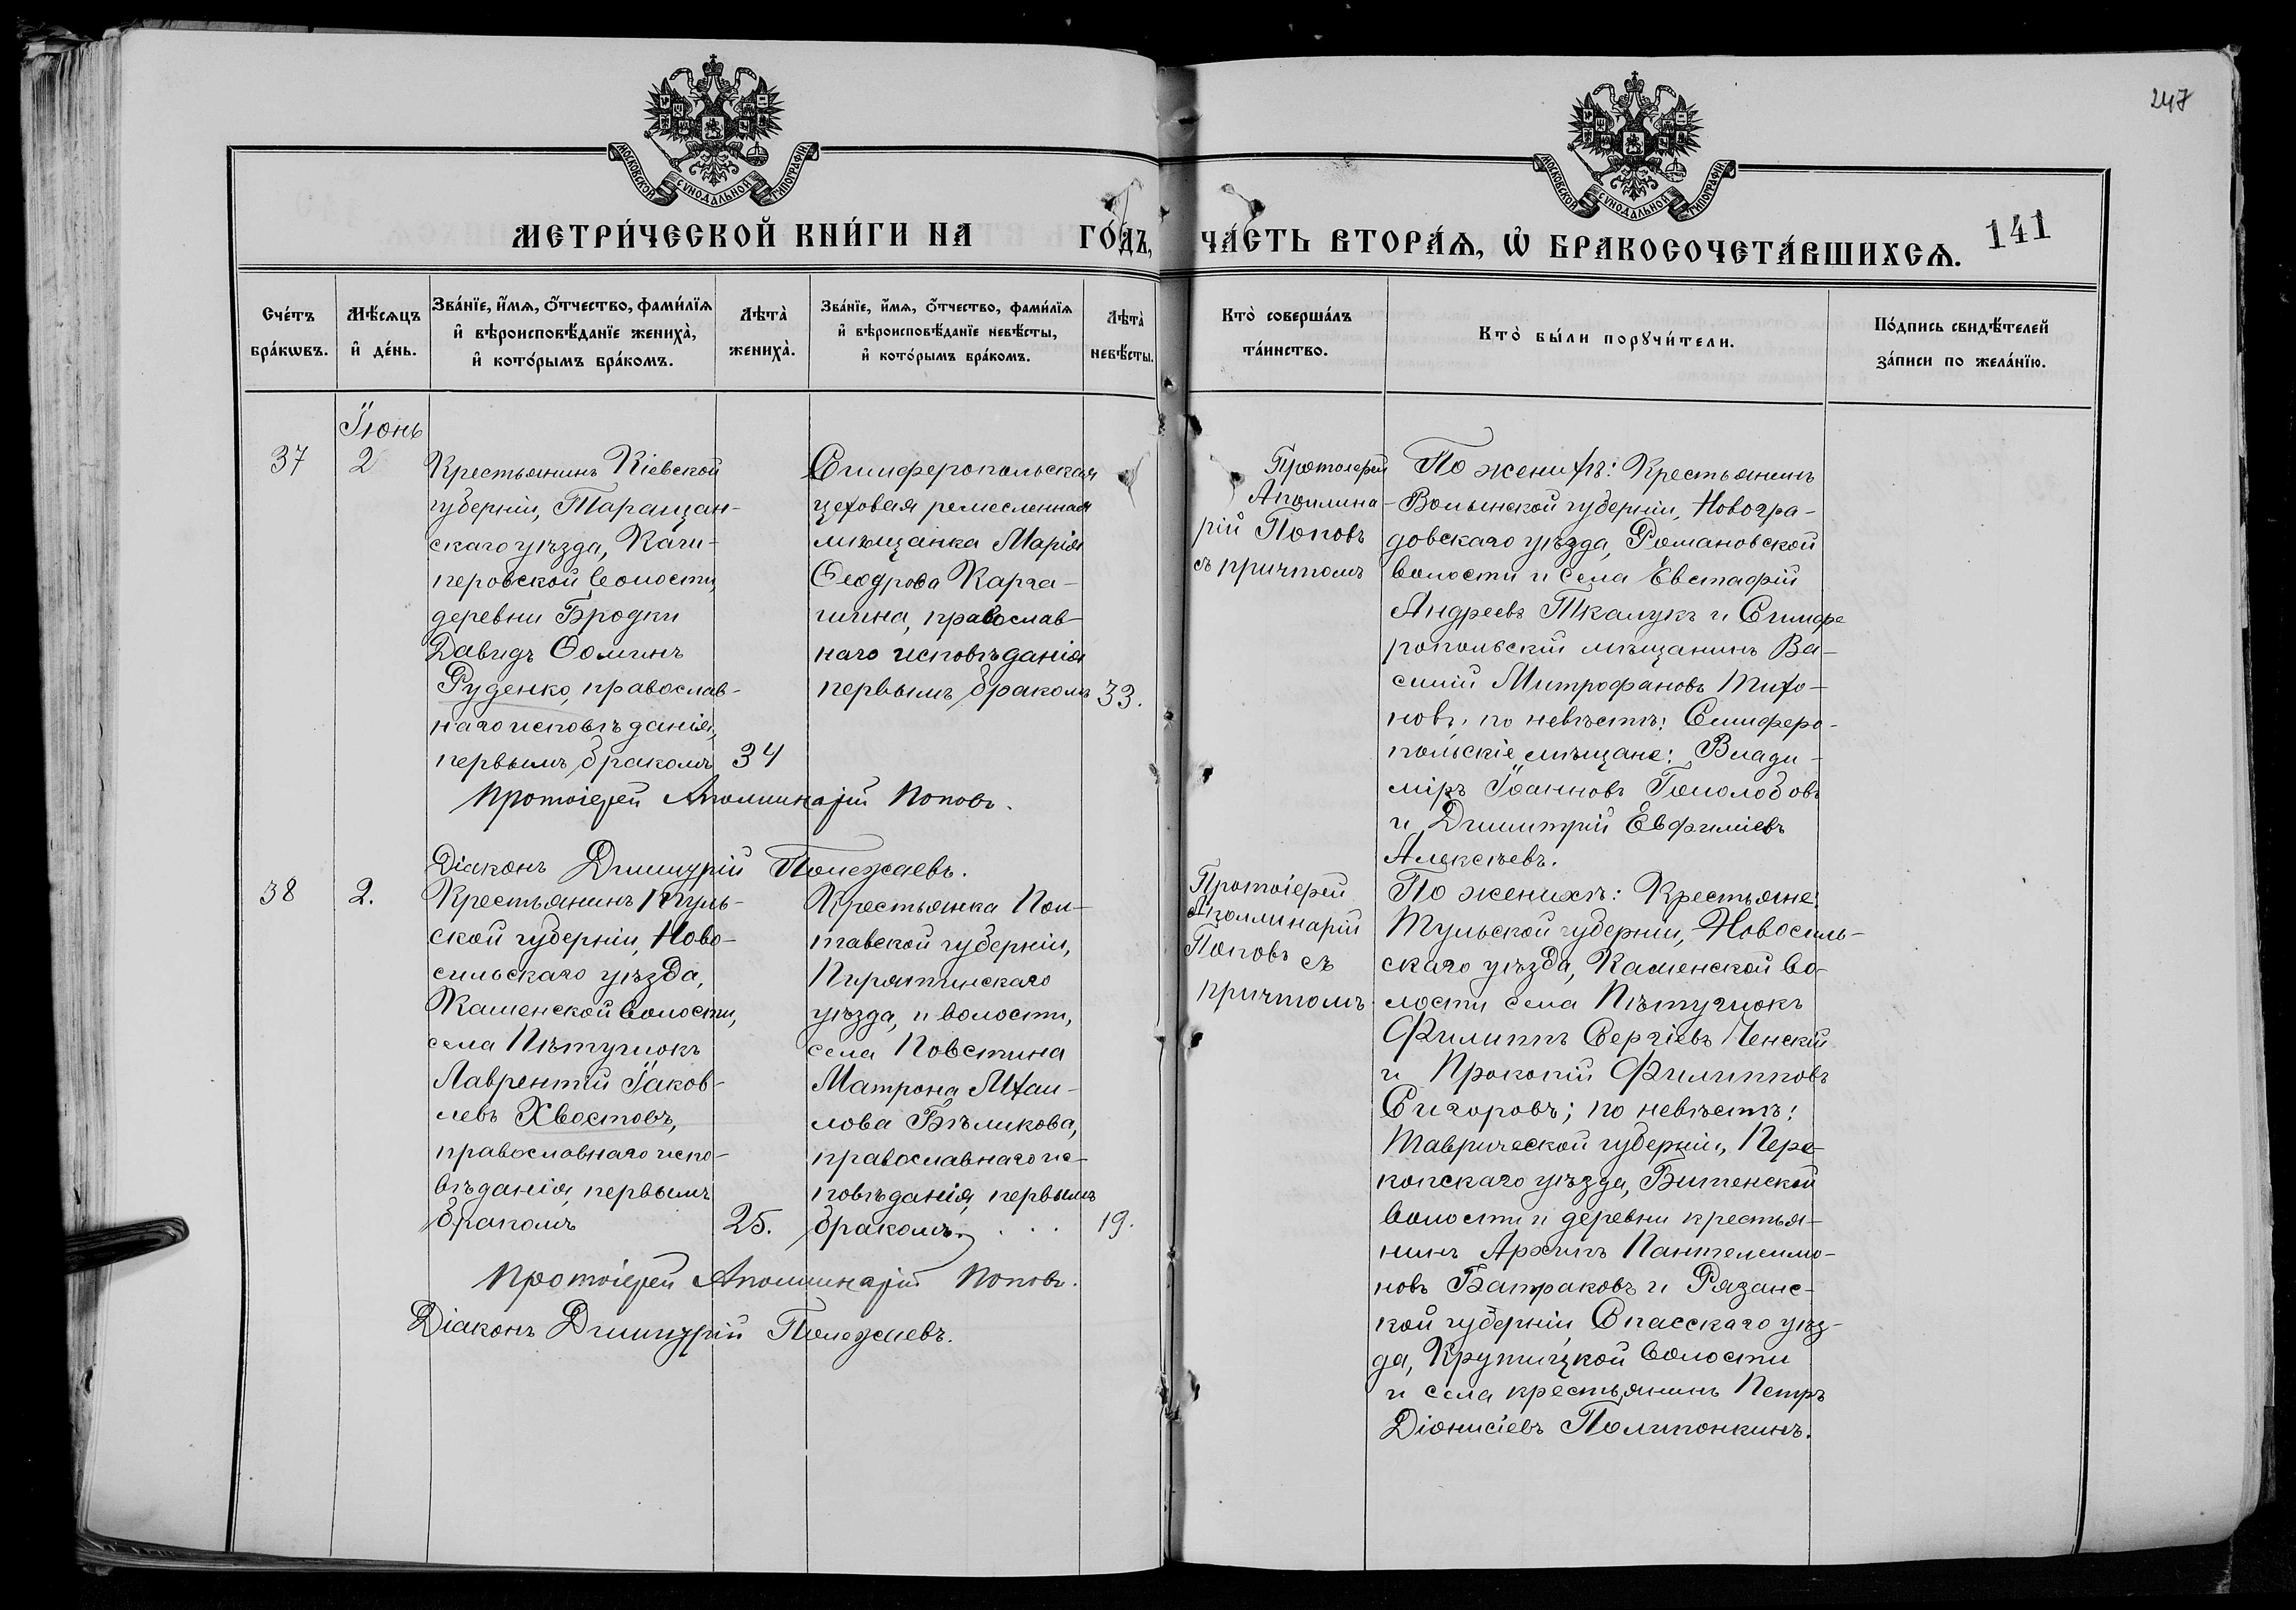 247
МОСКОВСКОЙ СѴНОДАЛЬНОЙ ТИПОГРАФІИ.
МОСКОВСКОЙ СѴНОДАЛЬНОЙ ТИПОГРАФІИ.
МЕТРИ́ЧЕСКОЙ КНИ́ГИ НА ГО́ДЪ,
ЧА́СТЬ ВТОРА́Ѧ, Ѡ҆ БРАКОСОЧЕТА́ВШИХСѦ.
141
Сче́тъ
бра́кѡвъ.
Мѣ́сѧцъ
и҆ де́нь.
Зва́нїе, и҆́мѧ, ѻ҆́тчество, фами́лїѧ
и҆ вѣроисповѣ́данїе жениха̀,
и҆ кото́рымъ бра́комъ.
Лѣта̀
жениха̀.
Зва́нїе, и҆́мѧ, ѻ҆́тчество, фами́лїѧ
и҆ вѣроисповѣ́данїе невѣ́сты,
и҆ кото́рымъ бра́комъ.
Лѣта̀
невѣ́сты.
Кто̀ соверша́лъ
та́инство.
Кто̀ бы́ли порꙋчи́тели.
По́дпись свидѣ́телей
за́писи по жела́нїю.
Іюнь
37
2
Крестьянинъ Кіевской
губерніи, Таращан-
скаго уѣзда, Каги-
перовской волости,
деревни Бродки
Давидъ Ѳоминъ
Руденко, православ-
наго исповѣданія,
первымъ бракомъ
34
Симферопольская
цеховая ремесленная
мѣщанка Марія
Ѳеодрова Карга-
гина, православ-
наго исповѣданія
первымъ бракомъ
33.
Протоіерей
Аполлина-
рій Поповъ
съ причтомъ
По женихѣ: Крестьянинъ
Волынской губерніи, Новогра-
довскаго уѣзда, Романовской
волости и села Евстафій
Андреевъ Ткалукъ и Симфе
ропольскій мѣщанинъ Ва-
силій Митрофановъ Тихо-
новъ, по невѣстѣ: Симферо-
польскіе мѣщане: Влади-
міръ Іоанновъ Гололобовъ
и Димитрій Евфиміевъ
Алексѣевъ.
Протоіерей Аполлинарій Поповъ.
Діаконъ Димитрій Полежаевъ.
38
2.
Крестьянинъ Туль-
ской губерніи, Ново-
сильскаго уѣзда,
Каменской волости,
села Пѣтушокъ
Лаврентій Іаков-
левъ Хвостовъ,
православнаго испо-
вѣданія, первымъ
бракомъ
25.
Крестьянка Пол-
тавской губерніи,
Пирятинскаго
уѣзда, и волости,
села Повстина
Матрона Мхаи-
лова Бѣликова,
православнаго ис-
повѣданія, первымъ
бракомъ. . . .
19.
Протоіерей
Аполлинарій
Поповъ съ
причтомъ.
По женихѣ: Крестьяне:
Тульской губерніи, Новосиль-
скаго уѣзда, Каменской во-
лости села Пѣтушокъ
Филиппъ Сергіевъ Ленскій
и Прокопій Филипповъ
Сигоровъ; по невѣстѣ:
Таврической губерніи, Пере-
копскаго уѣзда, Битенской
волости и деревни крестья-
нинъ Архипъ Пантелеимо-
новъ Батраковъ и Рязанс-
кой губерніи, Спасскаго уѣз-
да, Крутицкой волости
и села крестьянинъ Петръ
Діонисіевъ Полипонкинъ.
Протоіерей Аполлинарій Поповъ.
Діаконъ Димитрій Полежаевъ.